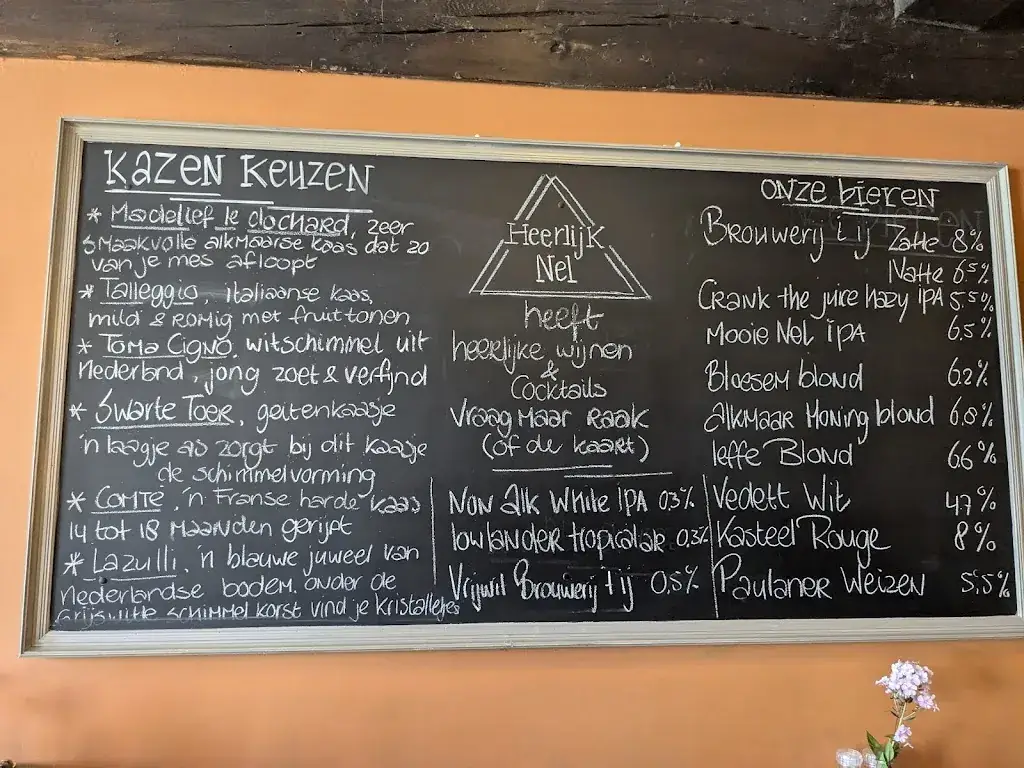 Kazen Keuzen
* Madelief le clochard, zeer
smaakvolle alkmaarse kaas dat zo
van je mes afloopt
* Talleggio, italiaanse kaas,
mild & romig met fruittonen
* Toma Cigno, witschimmel uit
Nederland, jong zoet & verfijnd
* Swarte Toer, geitenkaasje
'n laagje as zorgt bij dit kaasje
de schimmelvorming
* Comté, 'n Franse harde kaas
14 tot 18 maanden gerijpt
* Lazulli, 'n blauwe juweel van
nederlandse bodem. onder de
grijswitte schimmelkorst vind je kristalletjes
Heerlijk
Nel
heeft
heerlijke wijnen
&
Cocktails
Vraag maar raak
(of de kaart)
Non alk White IPA 0.3%
lowlander tropicalar 0.3%
Vrijwit Brouwerij t ij 0,5%
onze bieren
Brouwerij t ij Zatte 8%
Natte 6.5%
Crank the juice hazy IPA 5.5%
Mooie Nel IPA 6.5%
Bloesem blond 6.2%
alkmaar Honing blond 6.8%
leffe Blond 6.6%
Vedett Wit 4.7%
Kasteel Rouge 8%
Paulaner Weizen 5,5%